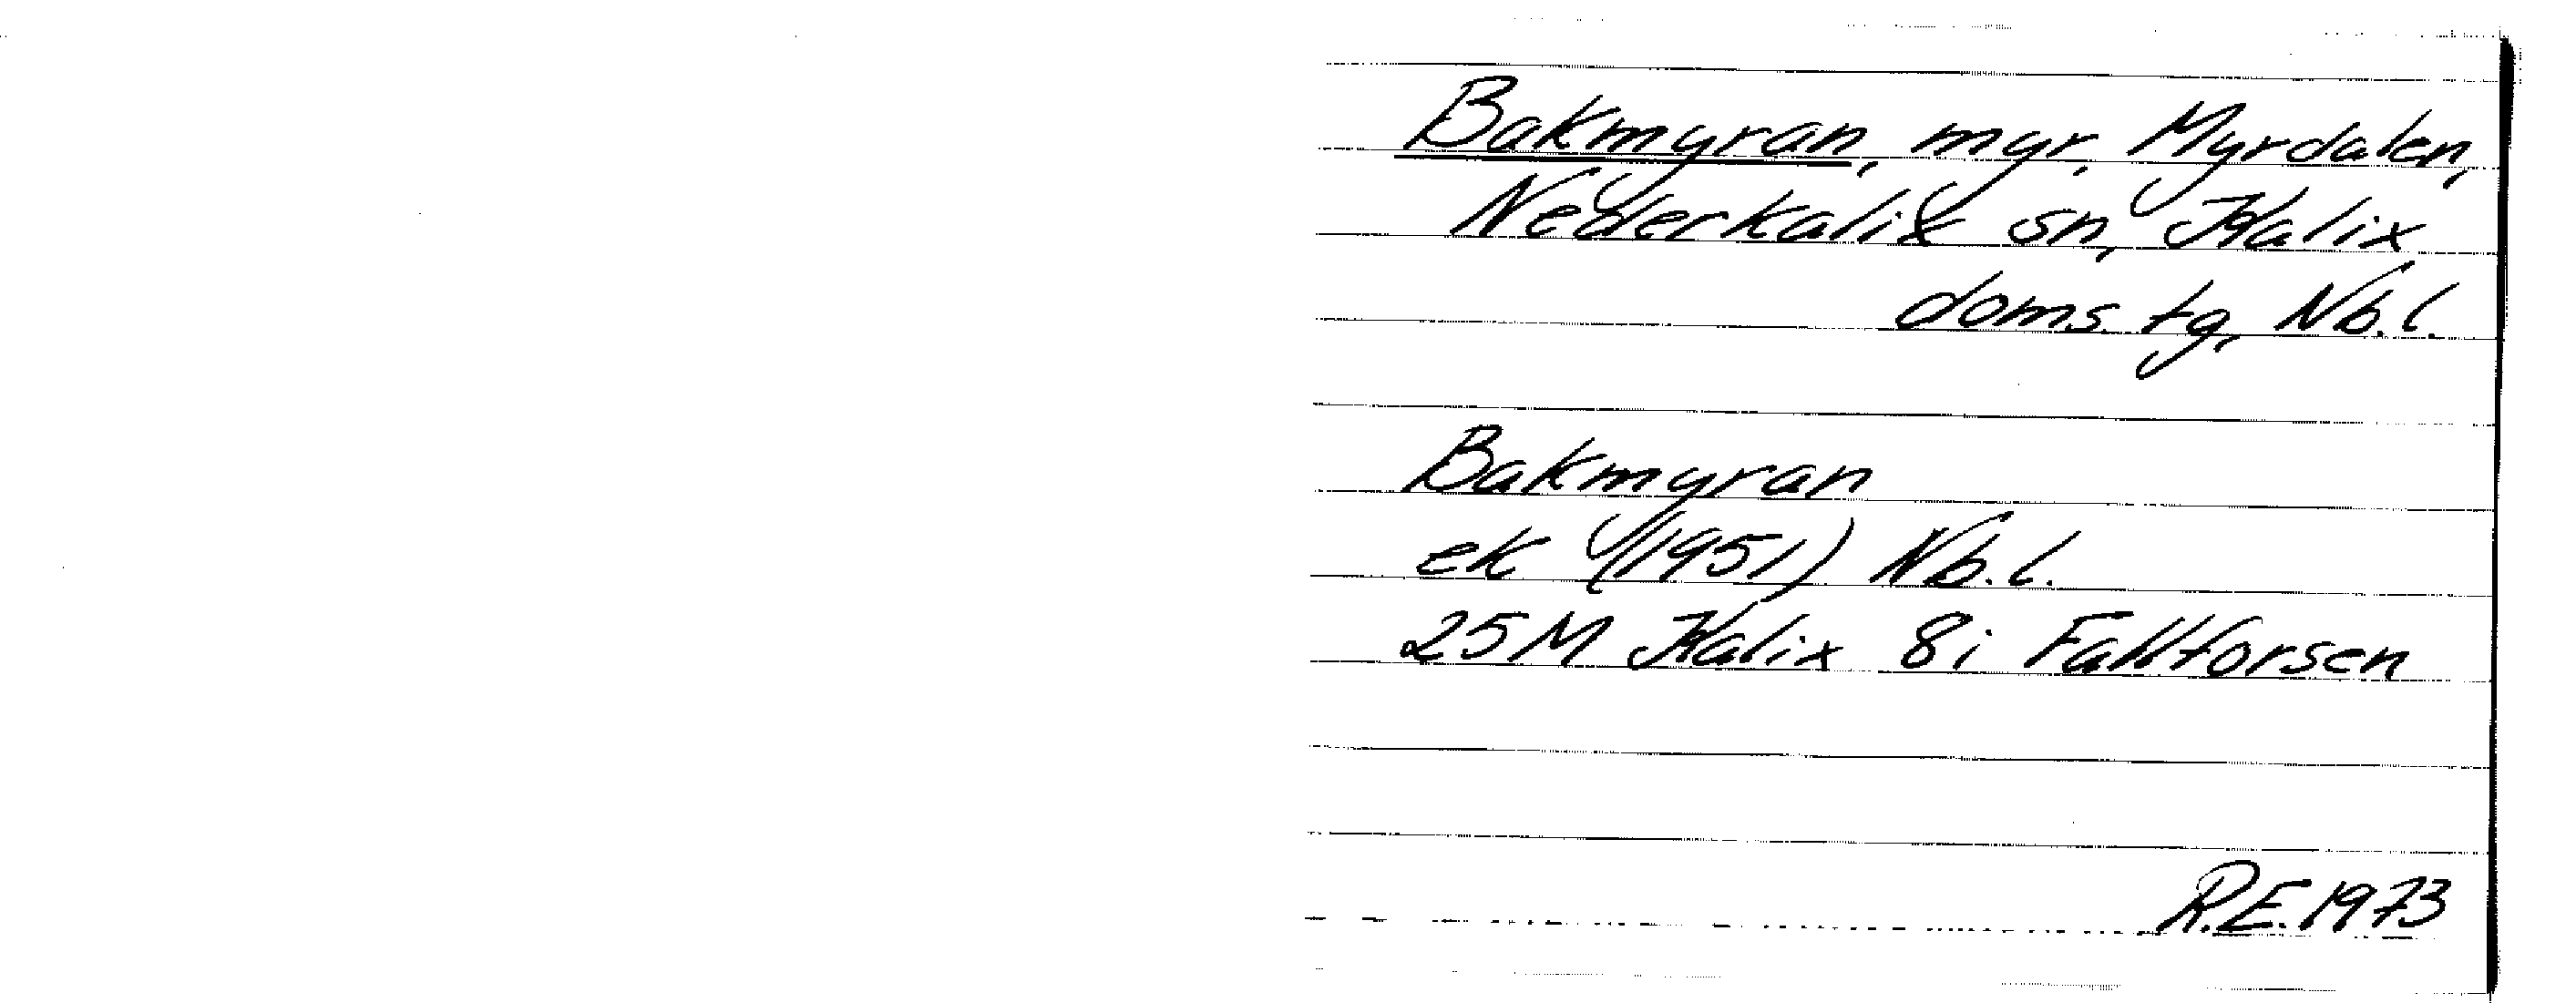 Bakmyran, myr, Myrdalen,
Nederkalix sn, Kalix
doms. tg, Nb.l.
Bakmyran
ek (1951) Nb.l.
25M Kalix 8i Fallforsen
R.E. 1973